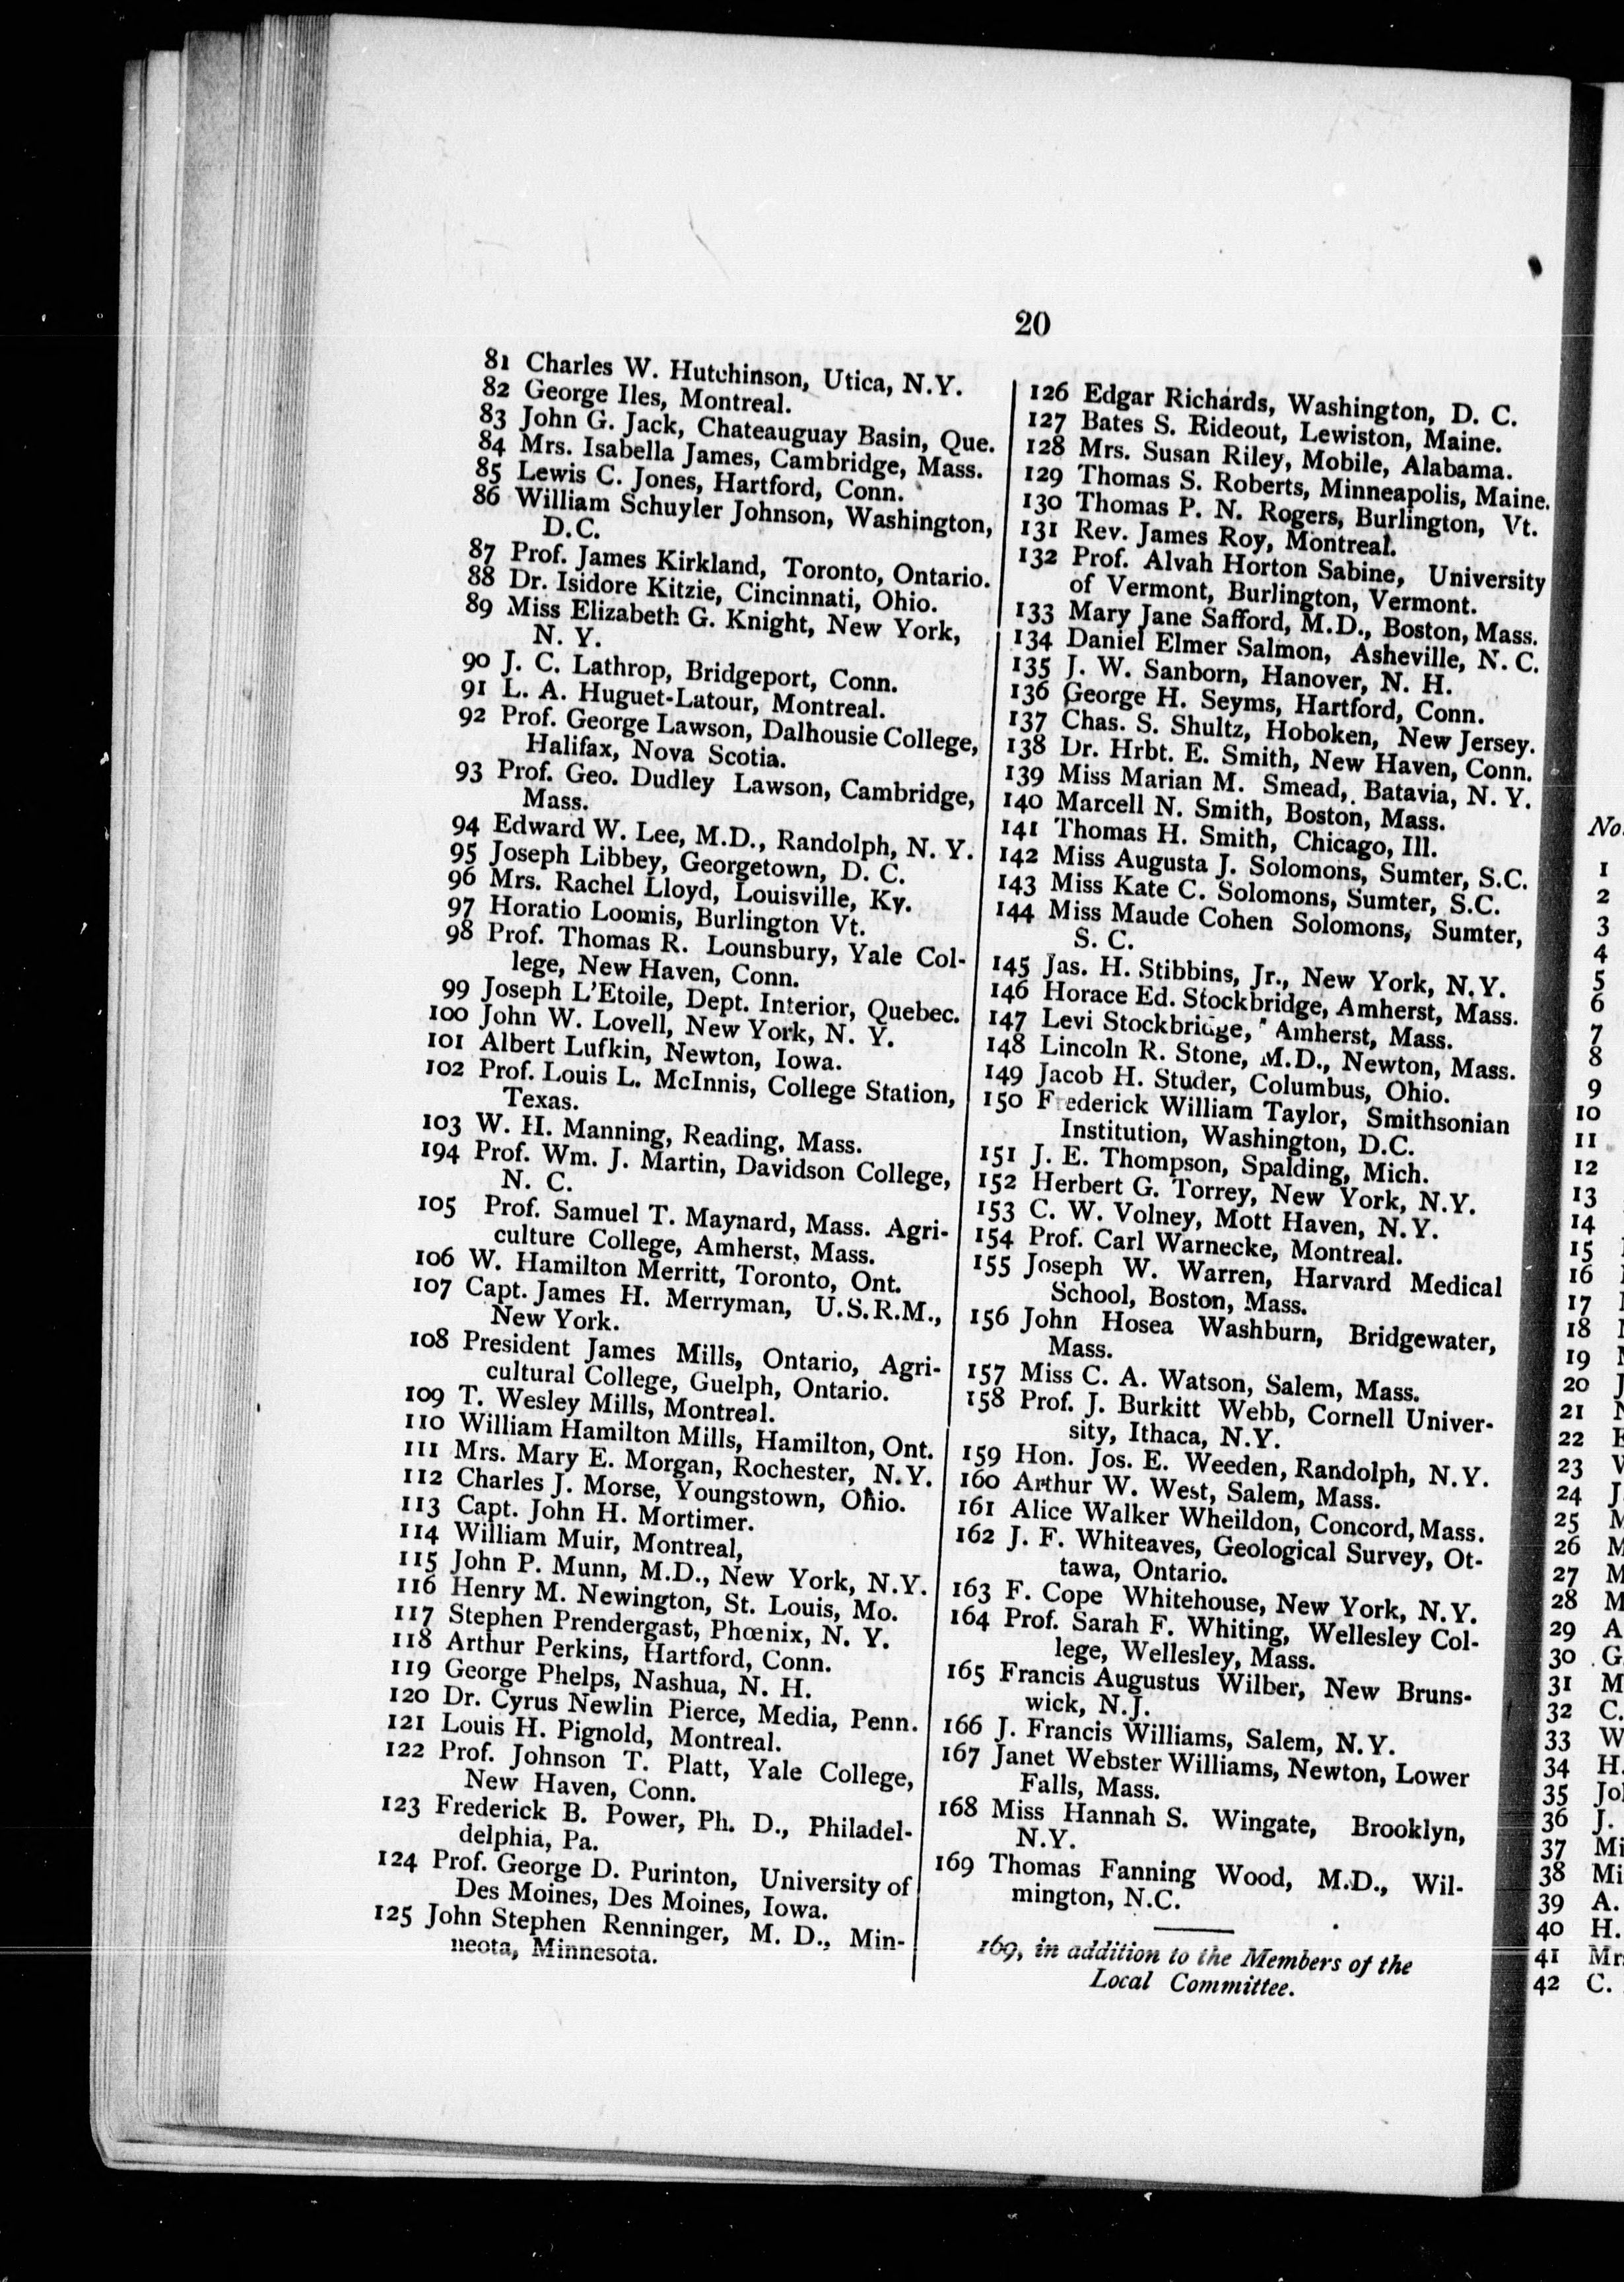 20
81 Charles W. Hutchinson, Utica, N.Y.
82 George Iles, Montreal.
83 John G. Jack, Chateauguay Basin, Que.
84 Mrs. Isabella James, Cambridge, Mass.
85 Lewis C. Jones, Hartford, Conn.
86 William Schuyler Johnson, Washington,
D.C.
87 Prof. James Kirkland, Toronto, Ontario.
88 Dr. Isidore Kitzie, Cincinnati, Ohio.
89 Miss Elizabeth G. Knight, New York,
N. Y.
90 J. C. Lathrop, Bridgeport, Conn.
91 L. A. Huguet-Latour, Montreal.
92 Prof. George Lawson, Dalhousie College,
Halifax, Nova Scotia.
93 Prof. Geo. Dudley Lawson, Cambridge,
Mass.
94 Edward W. Lee, M.D., Randolph, N. Y.
95 Joseph Libbey, Georgetown, D. C.
96 Mrs. Rachel Lloyd, Louisville, Ky.
97 Horatio Loomis, Burlington Vt.
98 Prof. Thomas R. Lounsbury, Yale Col-
lege, New Haven, Conn.
99 Joseph L'Etoile, Dept. Interior, Quebec.
100 John W. Lovell, New York, N. Y.
101 Albert Lufkin, Newton, Iowa.
102 Prof. Louis L. McInnis, College Station,
Texas.
103 W. H. Manning, Reading, Mass.
194 Prof. Wm. J. Martin, Davidson College,
N. C.
105 Prof. Samuel T. Maynard, Mass. Agri-
culture College, Amherst, Mass.
106 W. Hamilton Merritt, Toronto, Ont.
107 Capt. James H. Merryman, U.S.R.M.,
New York.
108 President James Mills, Ontario, Agri-
cultural College, Guelph, Ontario.
109 T. Wesley Mills, Montreal.
110 William Hamilton Mills, Hamilton, Ont.
111 Mrs. Mary E. Morgan, Rochester, N.Y.
112 Charles J. Morse, Youngstown, Ohio.
113 Capt. John H. Mortimer.
114 William Muir, Montreal,
115 John P. Munn, M.D., New York, N.Y.
116 Henry M. Newington, St. Louis, Mo.
117 Stephen Prendergast, Phœnix, N. Y.
118 Arthur Perkins, Hartford, Conn.
119 George Phelps, Nashua, N. H.
120 Dr. Cyrus Newlin Pierce, Media, Penn.
121 Louis H. Pignold, Montreal.
122 Prof. Johnson T. Platt, Yale College,
New Haven, Conn.
123 Frederick B. Power, Ph. D., Philadel-
delphia, Pa.
124 Prof. George D. Purinton, University of
Des Moines, Des Moines, Iowa.
125 John Stephen Renninger, M. D., Min-
neota, Minnesota.
126 Edgar Richards, Washington, D. C.
127 Bates S. Rideout, Lewiston, Maine.
128 Mrs. Susan Riley, Mobile, Alabama.
129 Thomas S. Roberts, Minneapolis, Maine.
130 Thomas P. N. Rogers, Burlington, Vt.
131 Rev. James Roy, Montreal.
132 Prof. Alvah Horton Sabine, University
of Vermont, Burlington, Vermont.
133 Mary Jane Safford, M.D., Boston, Mass.
134 Daniel Elmer Salmon, Asheville, N. C.
135 J. W. Sanborn, Hanover, N. H.
136 George H. Seyms, Hartford, Conn.
137 Chas. S. Shultz, Hoboken, New Jersey.
138 Dr. Hrbt. E. Smith, New Haven, Conn.
139 Miss Marian M. Smead, Batavia, N. Y.
140 Marcell N. Smith, Boston, Mass.
141 Thomas H. Smith, Chicago, Ill.
142 Miss Augusta J. Solomons, Sumter, S.C.
143 Miss Kate C. Solomons, Sumter, S.C.
144 Miss Maude Cohen Solomons, Sumter,
S. C.
145 Jas. H. Stibbins, Jr., New York, N.Y.
146 Horace Ed. Stockbridge, Amherst, Mass.
147 Levi Stockbridge, Amherst, Mass.
148 Lincoln R. Stone, M.D., Newton, Mass.
149 Jacob H. Studer, Columbus, Ohio.
150 Frederick William Taylor, Smithsonian
Institution, Washington, D.C.
151 J. E. Thompson, Spalding, Mich.
152 Herbert G. Torrey, New York, N.Y.
153 C. W. Volney, Mott Haven, N.Y.
154 Prof. Carl Warnecke, Montreal.
155 Joseph W. Warren, Harvard Medical
School, Boston, Mass.
156 John Hosea Washburn, Bridgewater,
Mass.
157 Miss C. A. Watson, Salem, Mass.
158 Prof. J. Burkitt Webb, Cornell Univer-
sity, Ithaca, N.Y.
159 Hon. Jos. E. Weeden, Randolph, N.Y.
160 Arthur W. West, Salem, Mass.
161 Alice Walker Wheildon, Concord, Mass.
162 J. F. Whiteaves, Geological Survey, Ot-
tawa, Ontario.
163 F. Cope Whitehouse, New York, N.Y.
164 Prof. Sarah F. Whiting, Wellesley Col-
lege, Wellesley, Mass.
165 Francis Augustus Wilber, New Bruns-
wick, N.J.
166 J. Francis Williams, Salem, N.Y.
167 Janet Webster Williams, Newton, Lower
Falls, Mass.
168 Miss Hannah S. Wingate, Brooklyn,
N.Y.
169 Thomas Fanning Wood, M.D., Wil-
mington, N.C.
169, in addition to the Members of the
Local Committee.
No.
1
2
3
4
5
6
7
8
9
10
11
12
13
14
15
16
17
18
19
20
21
22
23
24
25
26
27
28
29 A
30 G
31 M
32 C.
33 W
34 H.
35
36 J.
37
38
39 A.
40 H.
41
42 C.